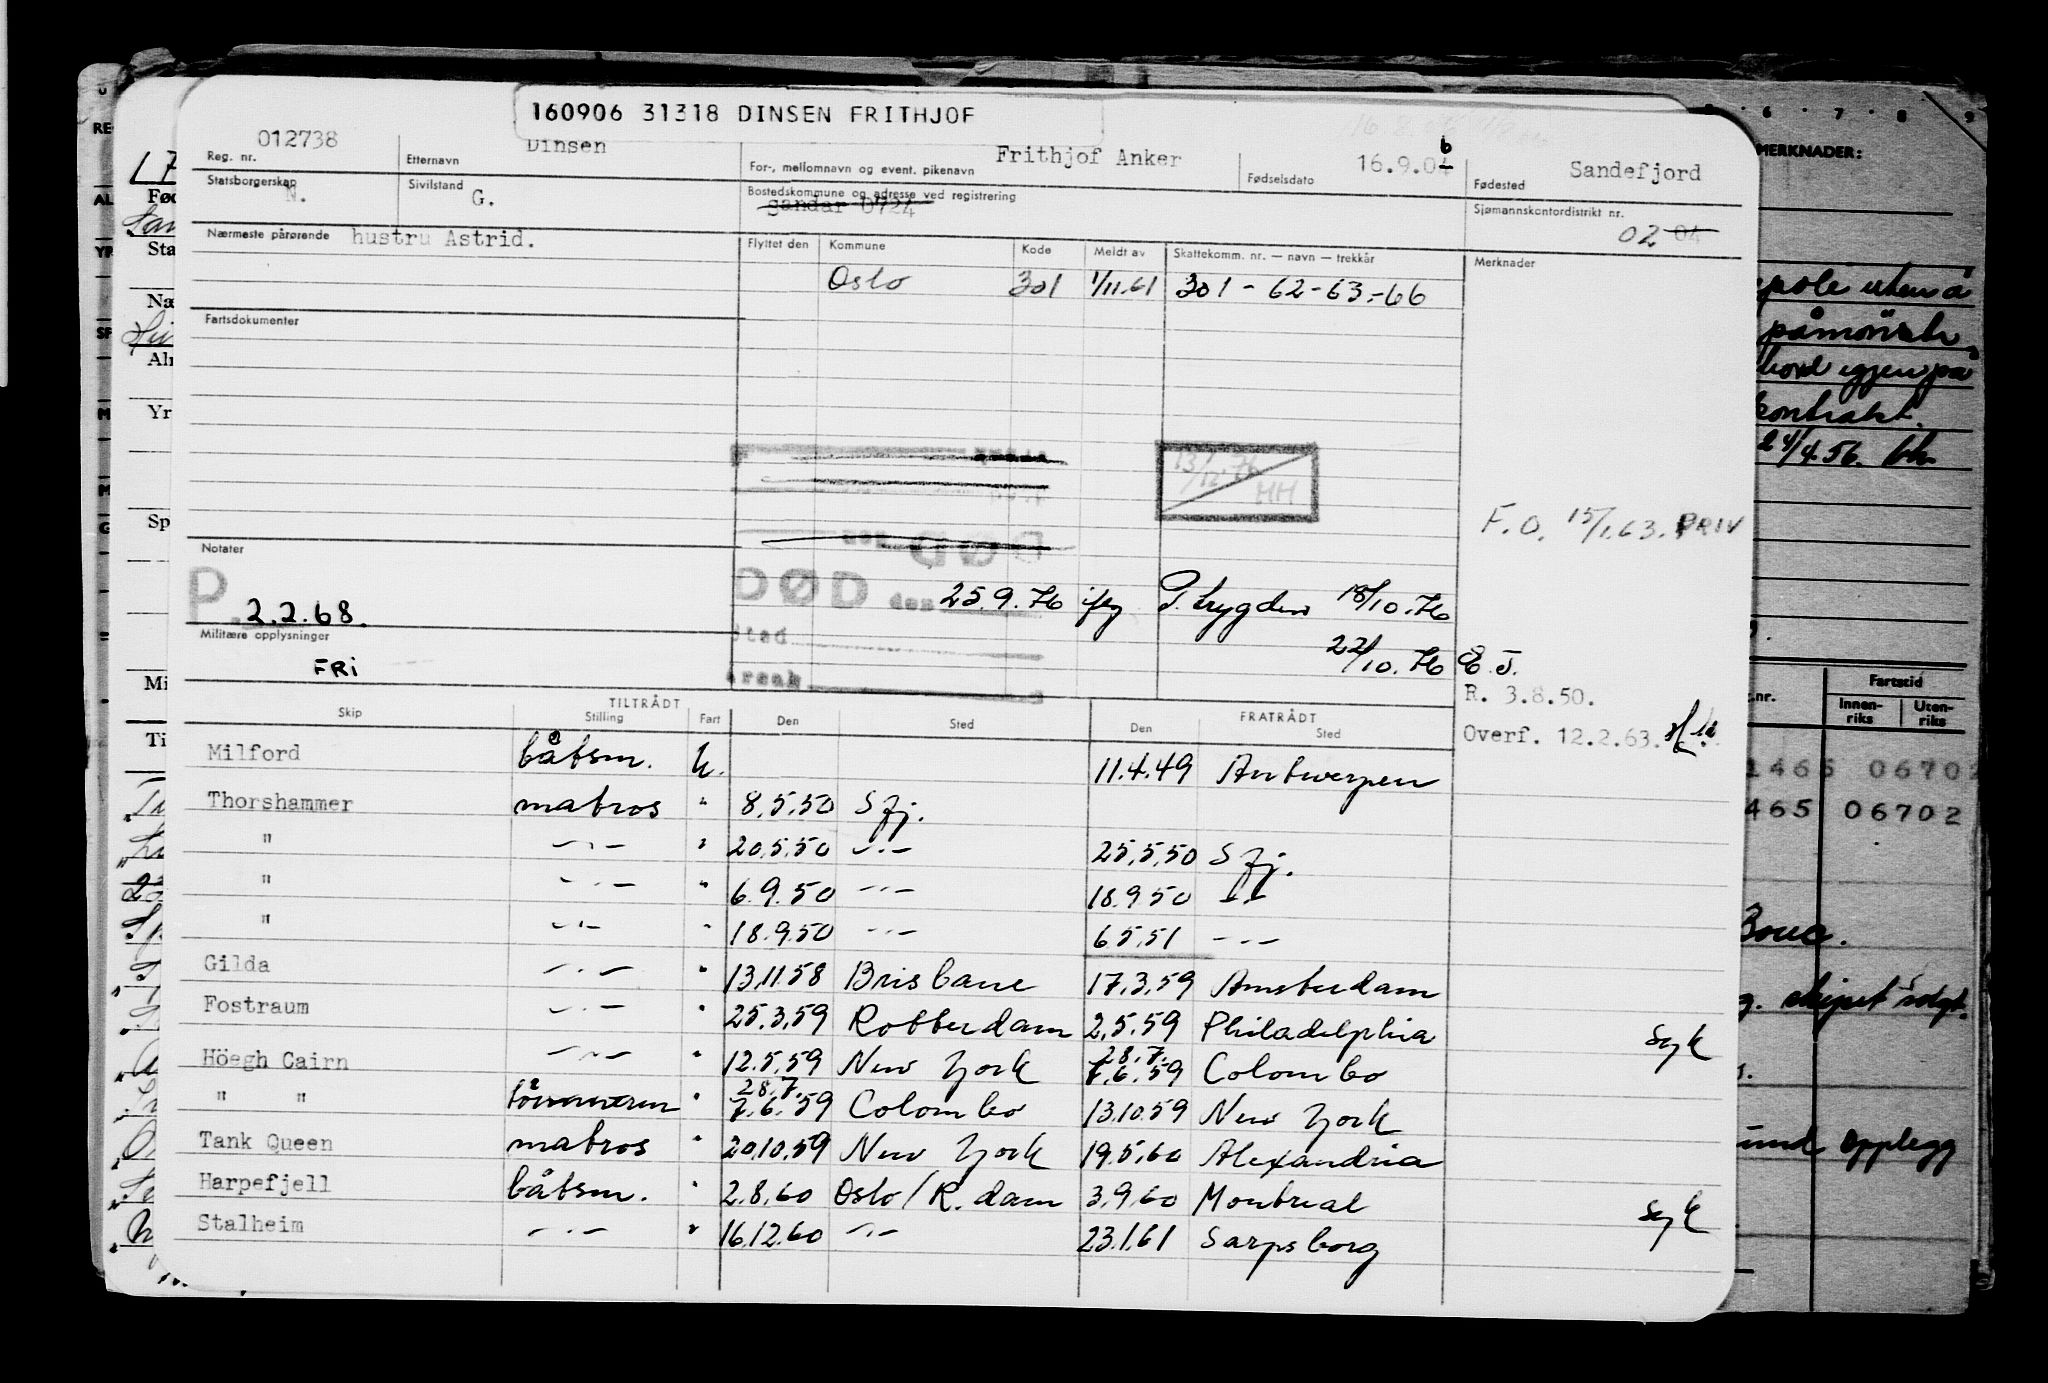 160906 31318 DINSEN FRITHJOF
012738 Dinsen Frithjof Anker 16.9.04 6 Sandefjord
Reg. nr. Etternavn For-, mellomnavn og event. pikenavn Fødselsdato Fødested
Statsborgerskap N. Sivilstand G. Bostedskommune og adresse ved registrering Sandar 0724 Sjømannskontordistrikt nr. 02 04
Nærmeste pårørende hustru Astrid. Flyttet den Kommune Kode Meldt av Skattekomm. nr. — navn — trekkår Merknader
Oslo 301 1/11.61 301 - 62-63.-66
Fartsdokumenter
13/12.76 HH
F.O. 15/1.63. PRIV
Notater
P. 2.2.68.
DØD den 25.9.76 ifg P. trygden 18/10.76
Militære opplysninger
Sted
22/10.76 E.J.
FRI
Årsak
R. 3.8.50.
Overf. 12.2.63.
TILTRÅDT FRATRÅDT
Skip Stilling Fart Den Sted Den Sted
Milford båtsm. U. 11.4.49 Antwerpen
Thorshammer matros " 8.5.50 Sfj.
" —·— " 20.5.50 —·— 25.5.50 Sfj.
" —·— " 6.9.50 —·— 18.9.50 —·—
" —·— " 18.9.50 —·— 6.5.51 —·—
Gilda —·— " 13.11.58 Brisbane 17.3.59 Amsterdam
Fostraum —·— " 25.3.59 Rotterdam 2.5.59 Philadelphia syk
Höegh Cairn —·— " 12.5.59 New York 28.7. 7.6.59 Colombo
" " tømmerm " 28.7. 7.6.59 Colombo 13.10.59 New York
Tank Queen matros " 20.10.59 New York 19.5.60 Alexandria
Harpefjell båtsm. " 2.8.60 Oslo/R.dam 3.9.60 Montreal syk
Stalheim —·— " 16.12.60 —·— 23.1.61 Sarpsborg
MERKNADER:
uten å
påmönstr.
bord igjen på
kontrakt.
24/4.56.
Fartstid
Innen-riks Uten-riks
1465 06702
465 06702
Bouc.
skipet solgt.
opplegg